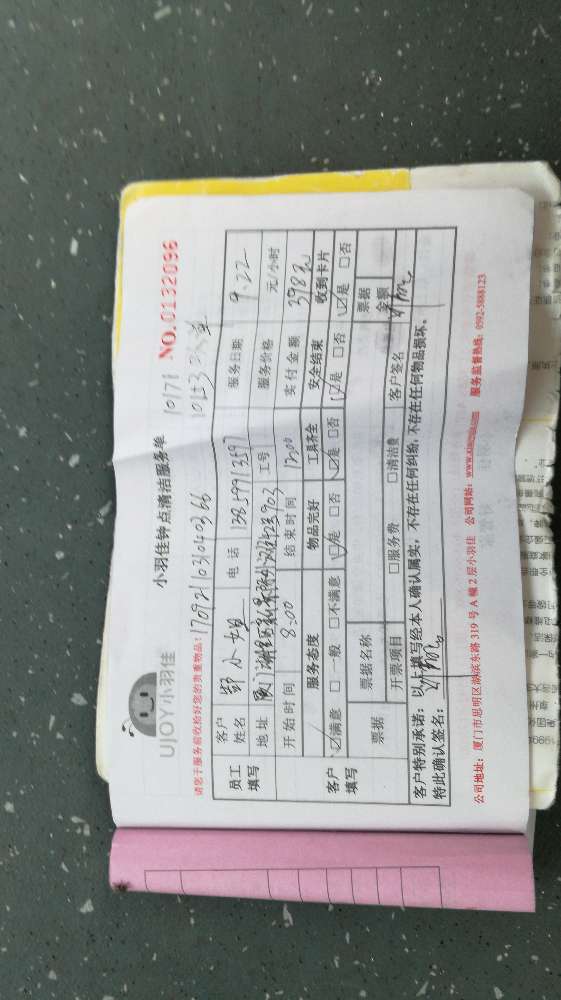 UJOY小羽佳
小羽佳钟点清洁服务单
NO.0132096
请您于服务前收拾好您的贵重物品：1709211031040266
员工填写
客户姓名 小姐 电话 服务日期 9.22
地址 工号 服务价格 元/小时
开始时间 8:00 结束时间 12:00 实付金额 398元
客户填写
服务态度 物品完好 工具齐全 安全结束 收到卡片
☑满意 □一般 □不满意 ☑是 □否 ☑是 □否 ☑是 □否 ☑是 □否
票据 票据名称 票据金额
开票项目 □服务费 □清洁费 客户签名
客户特别承诺：以上填写经本人确认属实，不存在任何纠纷，不存在任何物品损坏。
特此确认签名：
公司地址：厦门市思明区湖滨东路319号A幢2层小羽佳 公司网站： 服务监督热线：0592-5888123